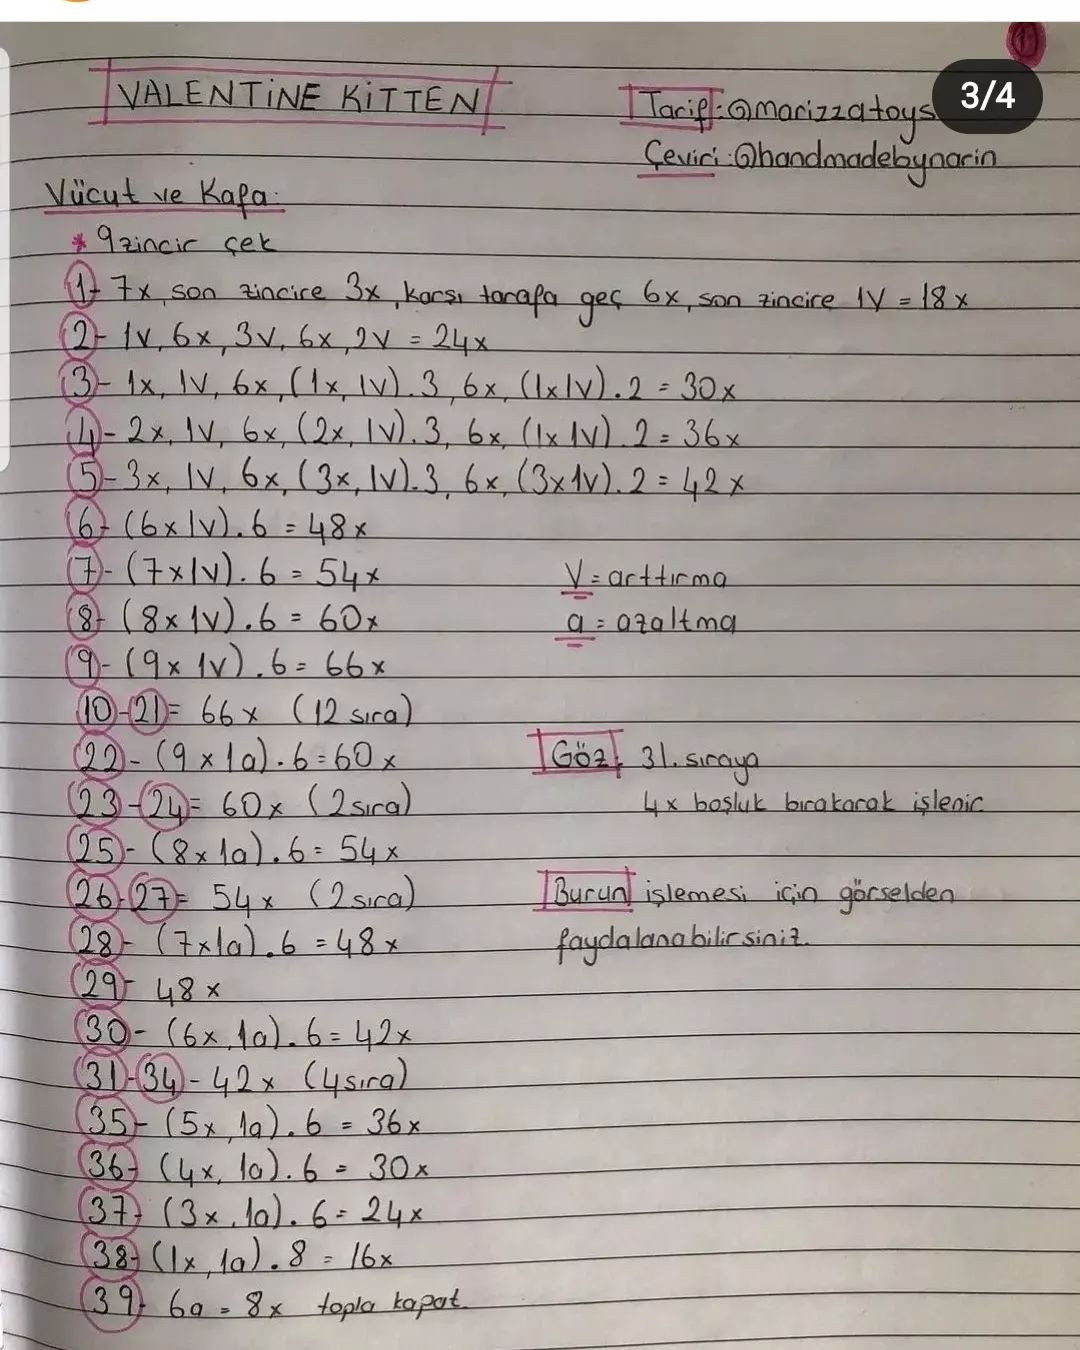 1
3/4
VALENTİNE KİTTEN
Tarif: @marizzatoys
Çeviri: @handmadebynarin
Vücut ve Kafa:
* 9 zincir çek
1- 7x, son zincire 3x, karşı tarafa geç 6x, son zincire 1V = 18x
2- 1V, 6x, 3V, 6x, 2V = 24x
3- 1x, 1V, 6x, (1x, 1V).3, 6x, (1x1V).2 = 30x
4- 2x, 1V, 6x, (2x, 1V).3, 6x, (1x1V).2 = 36x
5- 3x, 1V, 6x, (3x, 1V).3, 6x, (3x1V).2 = 42x
6- (6x1V).6 = 48x
7- (7x1V).6 = 54x
V = arttırma
8- (8x1V).6 = 60x
a = azaltma
9- (9x1V).6 = 66x
10-21= 66x (12 sıra)
22- (9x1a).6=60x
Göz: 31. sıraya
23-24= 60x (2 sıra)
4x boşluk bırakarak işlenir
25- (8x1a).6= 54x
26-27= 54x (2 sıra)
Burun işlemesi için görselden
28- (7x1a).6 = 48x
faydalanabilirsiniz.
29- 48x
30- (6x,1a).6= 42x
31-34- 42x (4 sıra)
35- (5x,1a).6 = 36x
36- (4x,1a).6 = 30x
37- (3x,1a).6= 24x
38- (1x,1a).8 = 16x
39- 6a = 8x topla kapat.